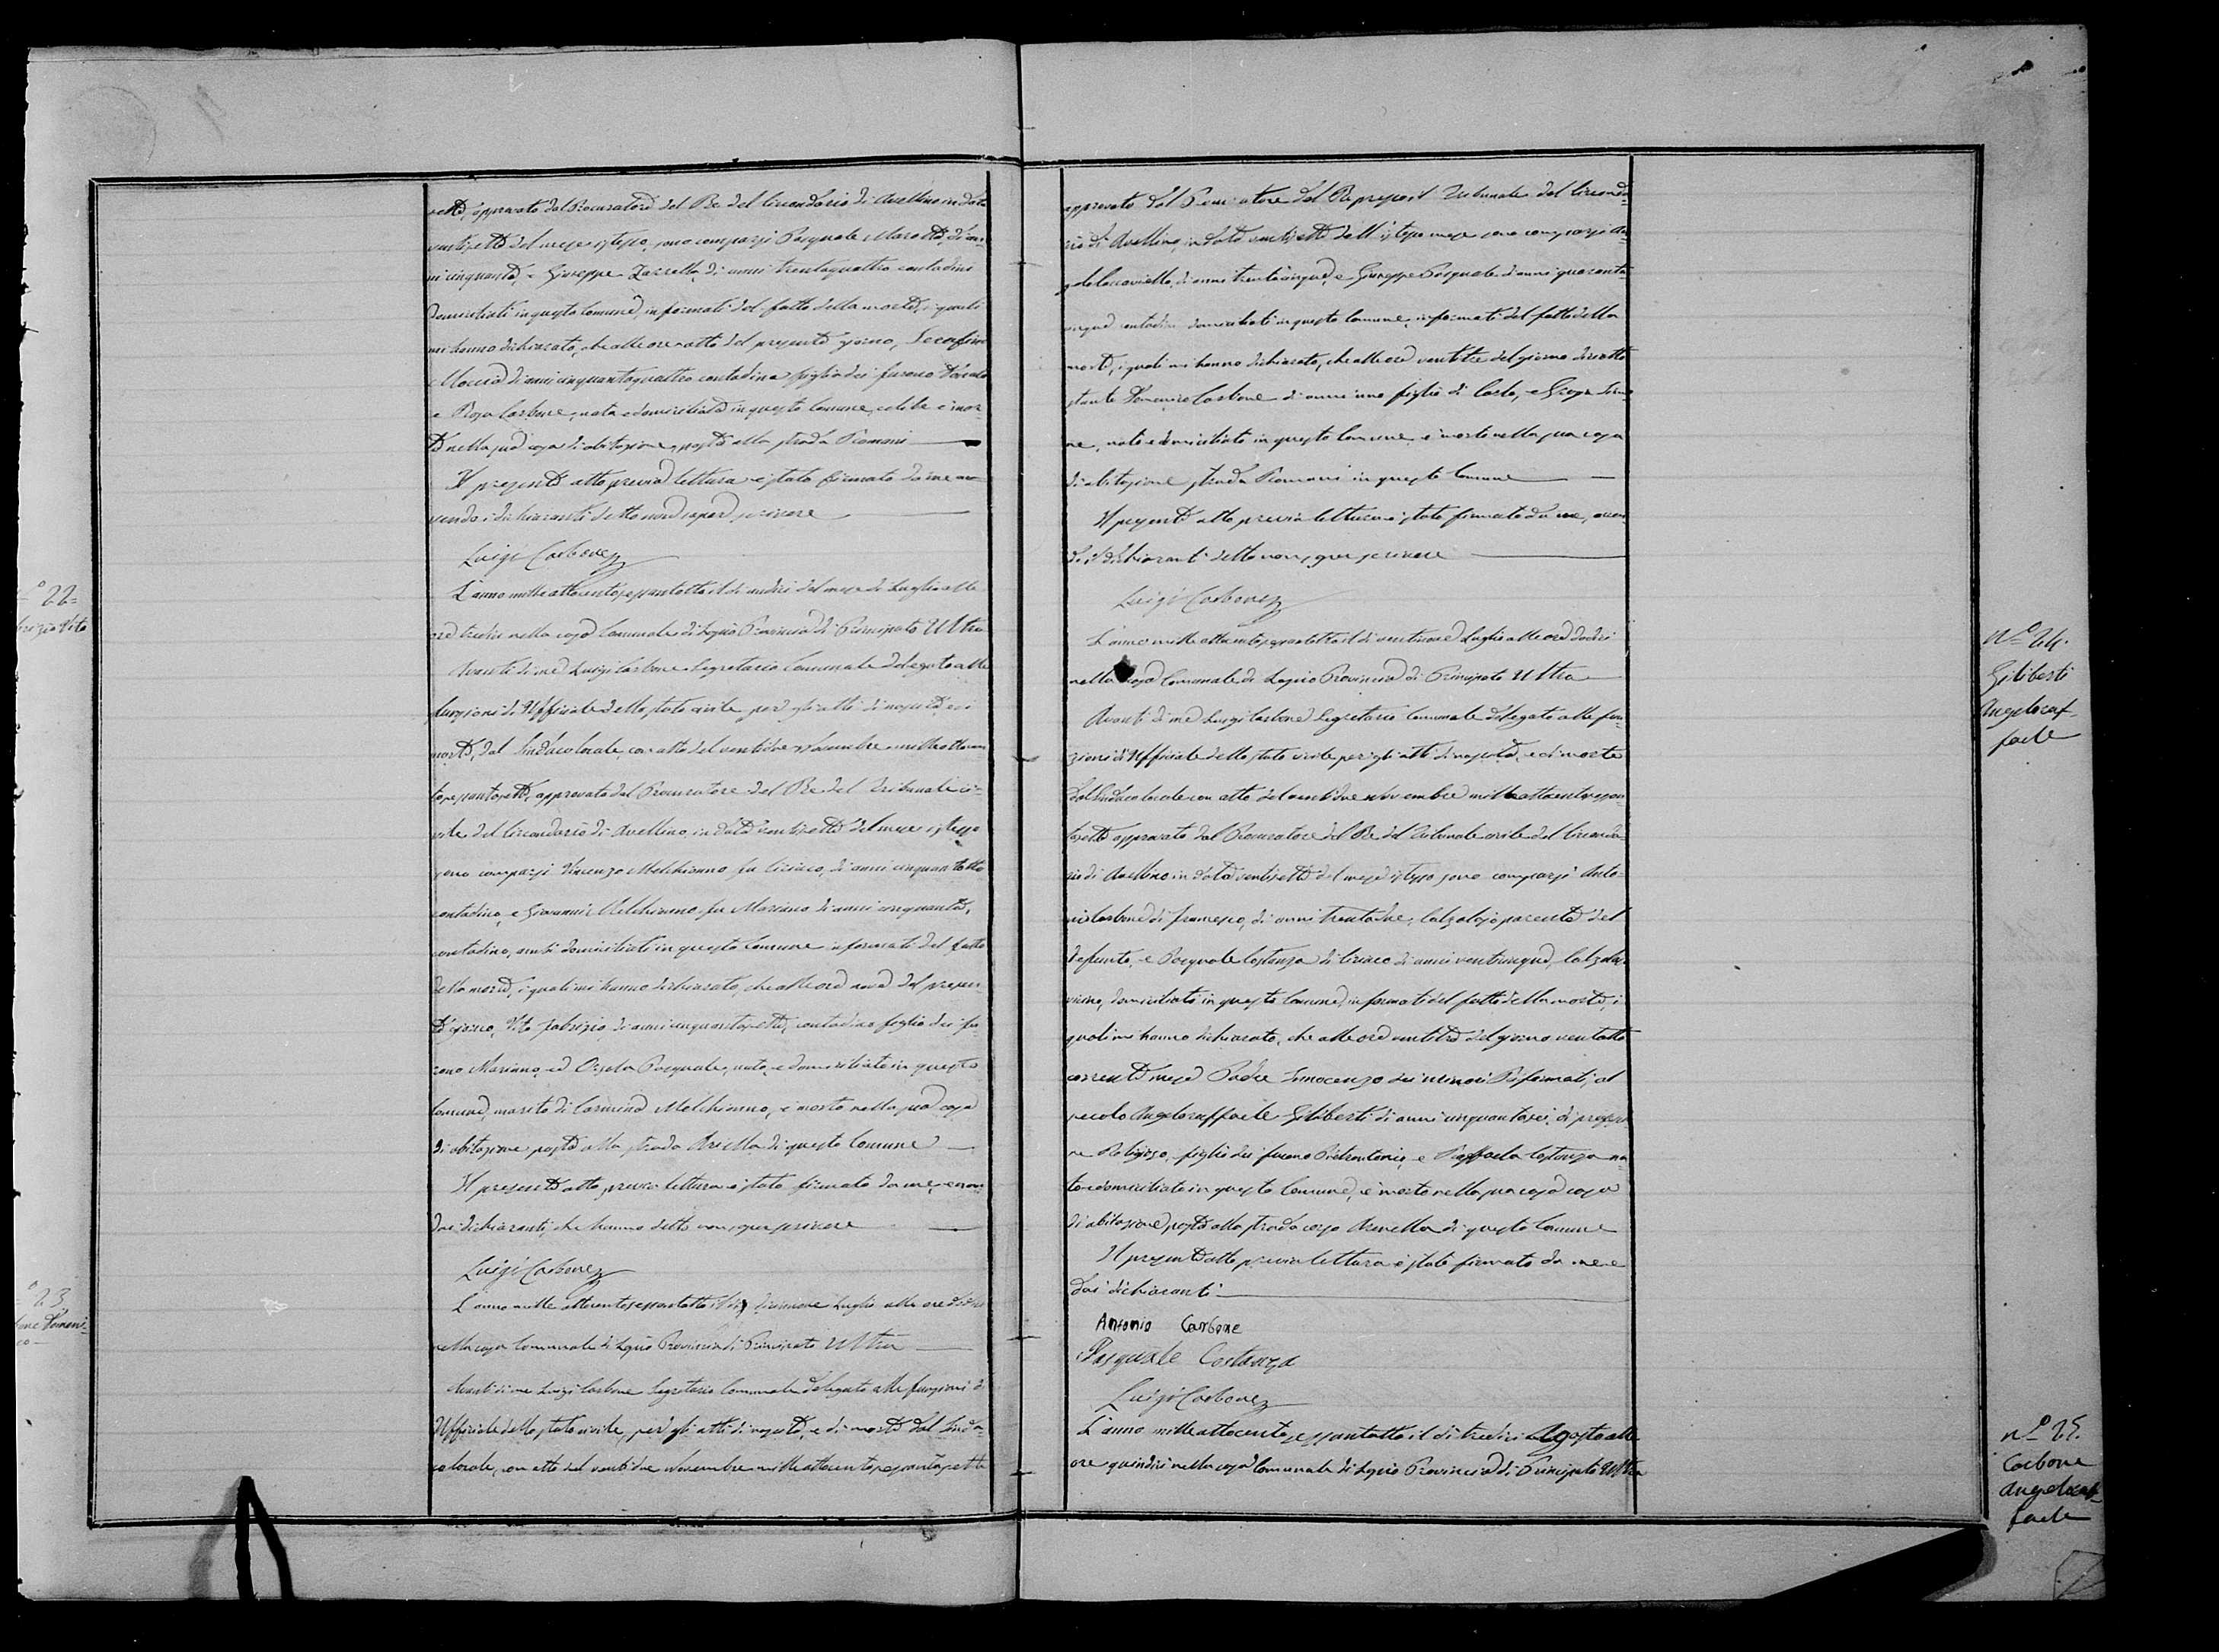 sette, approvato dal Procuratore del Re del Circondario di Avellino in data
ventisette del mese istesso, sono comparsi Pasquale Marotta, di an-
ni cinquanta, e Giuseppe Zarrella, di anni trentaquattro contadini
domiciliati in questo Comune, informati del fatto della morte, i quali
mi hanno dichiarato, che alle ore otto del presente giorno, Serafina
Moccia di anni cinquantaquattro contadina figlia dei furono
e Rosa Carbone, nata e domiciliata in questo Comune, celibe è mor-
ta nella sua casa di abitazione, posta alla strada Piomani
Il presente atto previa lettura è stato firmato da me a-
vendo i dichiaranti detto non saper scrivere
Luigi Carbone
N.º 22=
brizio Vito
L'anno mille ottocentosessantotto il dì undici del mese di Luglio alle
ore tredici nella casa Comunale di Lapio Provincia di Principato Ultra
Avanti di me Luigi Carbone Segretario Comunale delegato alle
funzioni di Uffiziale dello stato civile per gli atti di nascita, e di
morte, dal Sindaco locale, con atto del ventidue Novembre mille ottocen-
tosessantasette, approvato dal Procuratore del Re del Tribunale ci-
vile del Circondario di Avellino, in data ventisette del mese istesso
sono comparsi Vincenzo Melchionno fu Ciriaco, di anni cinquantotto
contadino, e Giovanni Melchionno fu Mariano di anni cinquanta,
contadino, ambi domiciliati in questo Comune informati del fatto
della morte, i quali mi hanno dichiarato, che alle ore nove del presen-
te giorno, Vito Fabrizio, di anni cinquantasette, contadino figlio dei fu-
rono Mariano, ed Orsola Pasquale, nato, e domiciliato in questo
Comune, marito di Carmina Melchionno, è morto nella sua casa
di abitazione posta alla strada Ariella di questo Comune
Il presente atto previa lettura è stato firmato da me, aven-
do i dichiaranti, che hanno detto non saper scrivere
Luigi Carbone
23
bone Domeni-
co
L'anno mille ottocentosessantotto il dì diciannove Luglio alle ore dodici
nella casa Comunale di Lapio Provincia di Principato Ultra
Avanti di me Luigi Carbone Segretario Comunale delegato alle funzioni di
Uffiziale dello stato civile, per gli atti di nascita, e di morte dal Sinda-
co locale, con atto del ventidue Novembre mille ottocentosessantasette
approvato dal Procuratore del Re presso il Tribunale del Circonda-
rio di Avellino, in data ventisette dell'istesso mese sono comparsi An-
gelo Coccoviello, di anni trentacinque, e Giuseppe Pasquale di anni quaranta-
cinque contadini domiciliati in questo Comune, informati del fatto della
morte, i quali mi hanno dichiarato, che alle ore ventitre del giorno diciotto
stante Domenico Carbone di anni uno figlio di Carlo, e Grazia
ne, nato e domiciliato in questo Comune è morto nella sua casa
di abitazione strada Piomani in questo Comune
Il presente atto previa lettura è stato firmato da me, aven-
do i dichiaranti detto non saper scrivere
Luigi Carbone
N.º 24.
Giliberti
Angeloraf-
faele
L'anno mille ottocentosessantotto il dì ventinove Luglio alle ore dodici
nella casa Comunale di Lapio Provincia di Principato Ultra
Avanti di me Luigi Carbone Segretario Comunale delegato alle fun-
zioni di Uffiziale dello stato civile per gli atti di nascita, e di morte
dal Sindaco locale con atto del ventidue Novembre mille ottocentosessan-
tasette approvato dal Procuratore del Re del Tribunale civile del Circonda-
rio di Avellino in data ventisette del mese istesso sono comparsi Anto-
nio Carbone di Francesco, di anni trentadue, Calzolajo parente del
defunto, e Pasquale Costanza di Ciriaco di anni venticinque, Calzolajo
vicino, domiciliati in questo Comune, informati del fatto della morte, i
quali mi hanno dichiarato, che alle ore ventitre del giorno ventotto
corrente mese Padre Innocenzo dei Minori Riformati, al
secolo Angeloraffaele Giliberti di anni cinquantasei, di professio-
ne Religioso, figlio dei furono Pietrantonio, e Raffaela Costanza na-
to e domiciliato in questo Comune, è morto nella sua casa casa
di abitazione, posta alla strada corso Arenella di questo Comune
Il presente atto previa lettura è stato firmato da me e
dai dichiaranti
Antonio Carbone
Pasquale Costanza
Luigi Carbone
N.º 25.
Carbone
Angeloraf-
faele
L'anno mille ottocentosessantotto il dì tredici Agosto alle
ore quindici nella casa Comunale di Lapio Provincia di Principato Ultra